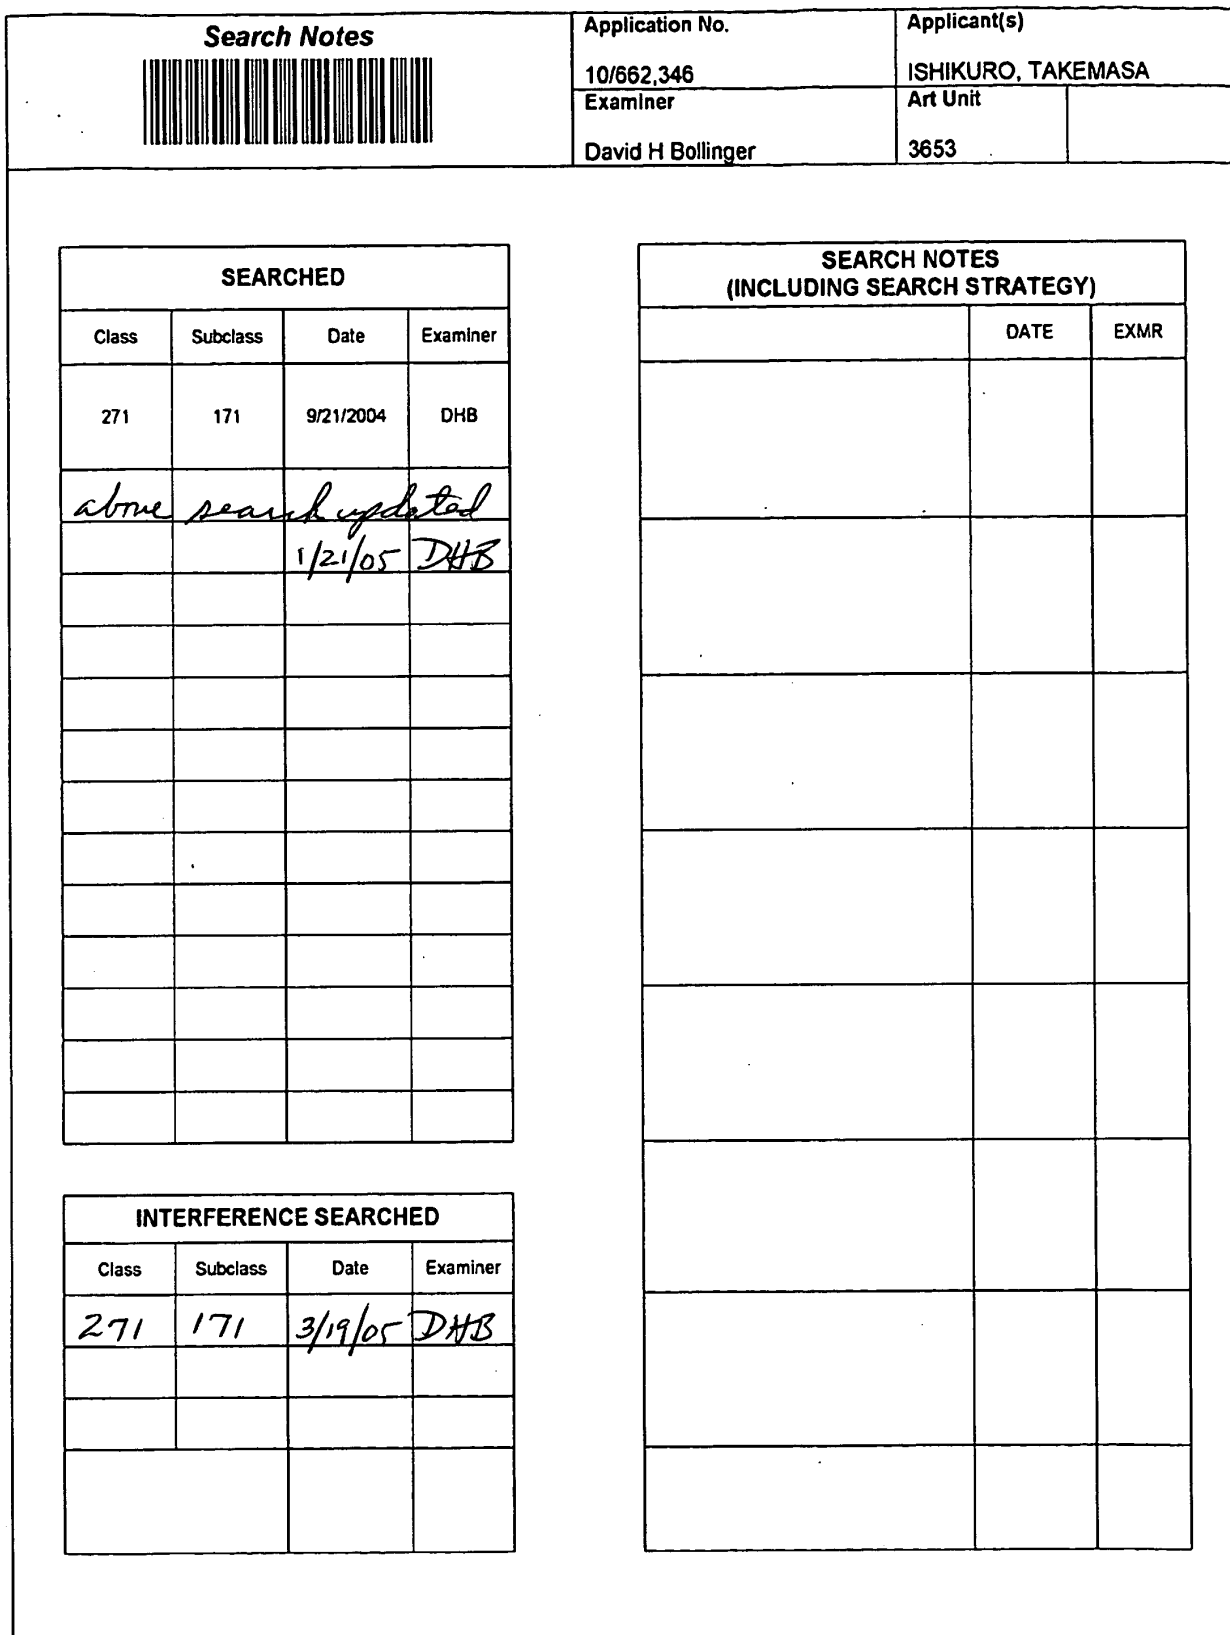 Search Notes
Application No.
Applicant(s)
10/662,346
ISHIKURO, TAKEMASA
Examiner
Art Unit
David H Bollinger
3653
SEARCHED
Class Subclass Date Examiner
271 171 9/21/2004 DHB
above search updated
1/21/05 DHB
INTERFERENCE SEARCHED
Class Subclass Date Examiner
271 171 3/19/05 DHB
SEARCH NOTES
(INCLUDING SEARCH STRATEGY)
DATE EXMR